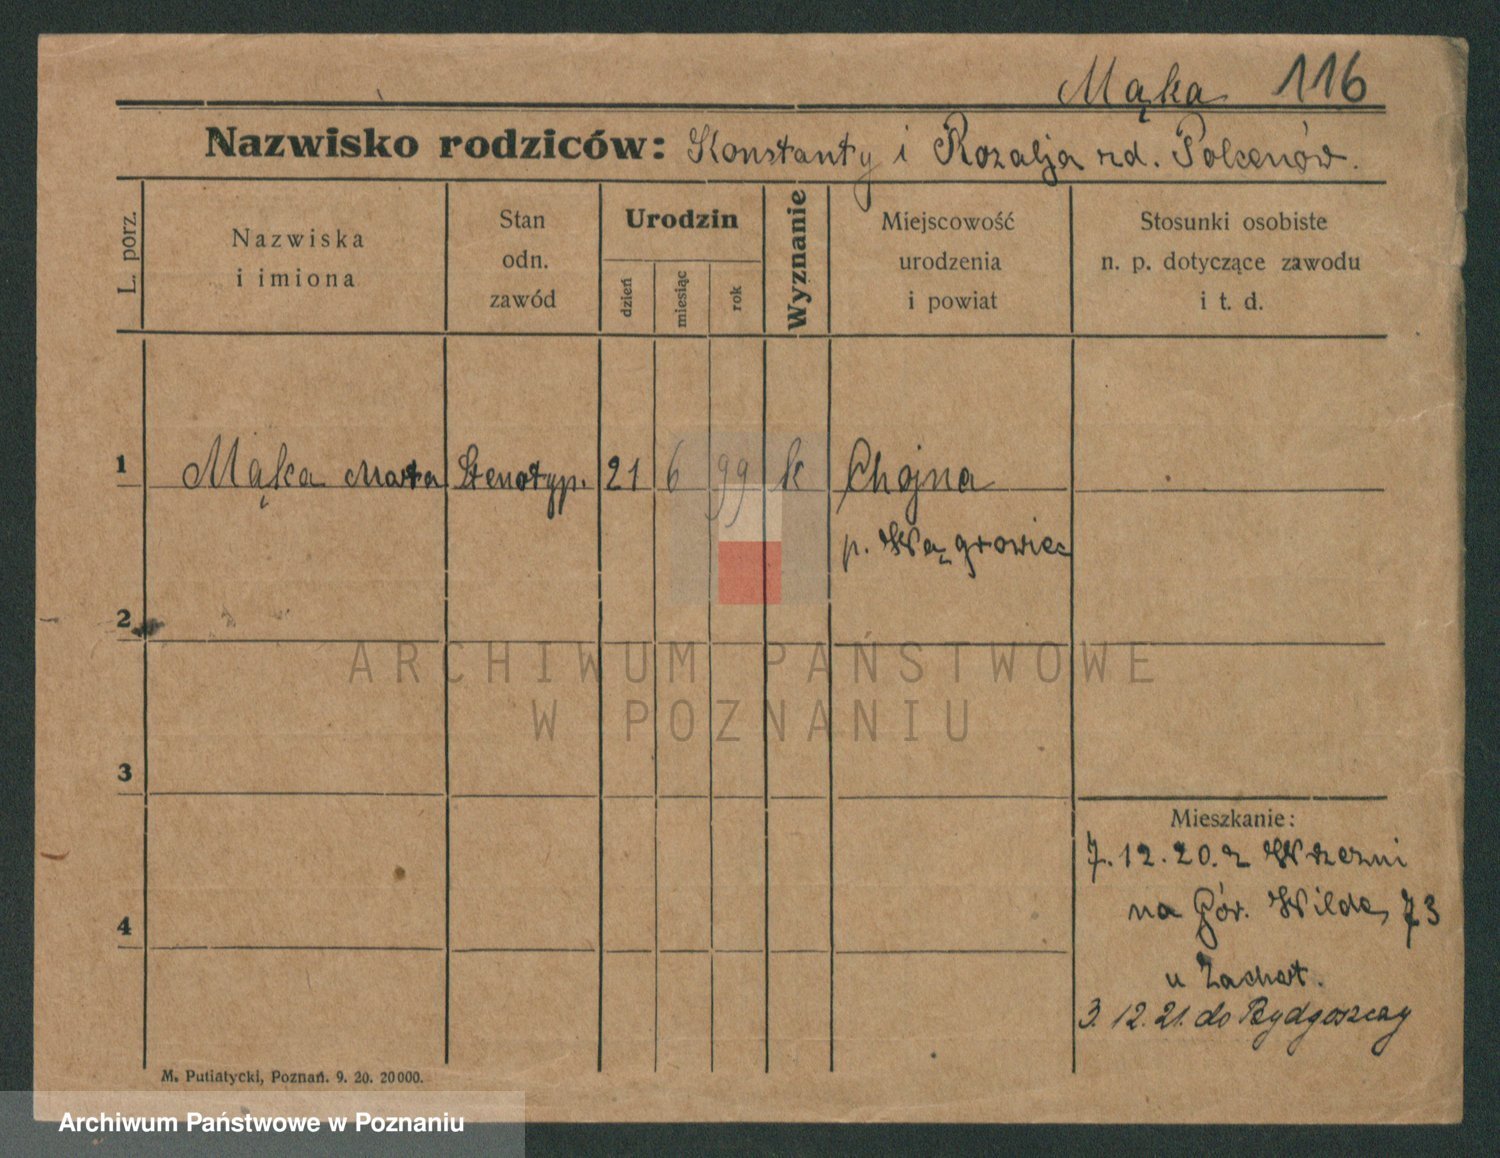 Mąka 116
Nazwisko rodziców: Konstanty i Rozalja rd. Polcenów.
L. porz.
Nazwiska
i imiona
Stan
odn.
zawód
Urodzin
dzień
miesiąc
rok
Wyznanie
Miejscowość
urodzenia
i powiat
Stosunki osobiste
n. p. dotyczące zawodu
i t. d.
1 Mąka Marta Stenotyp. 21 6 99 k Chojna
p. Wągrowiec
2
ARCHIWUM PAŃSTWOWE
W POZNANIU
3
Mieszkanie:
7. 12. 20. z Wrzeźni
na Gór. Wilde, 73
4
u Zachert.
3. 12. 21. do Bydgoszczy
M. Putiatycki, Poznań. 9. 20. 20000.
Archiwum Państwowe w Poznaniu